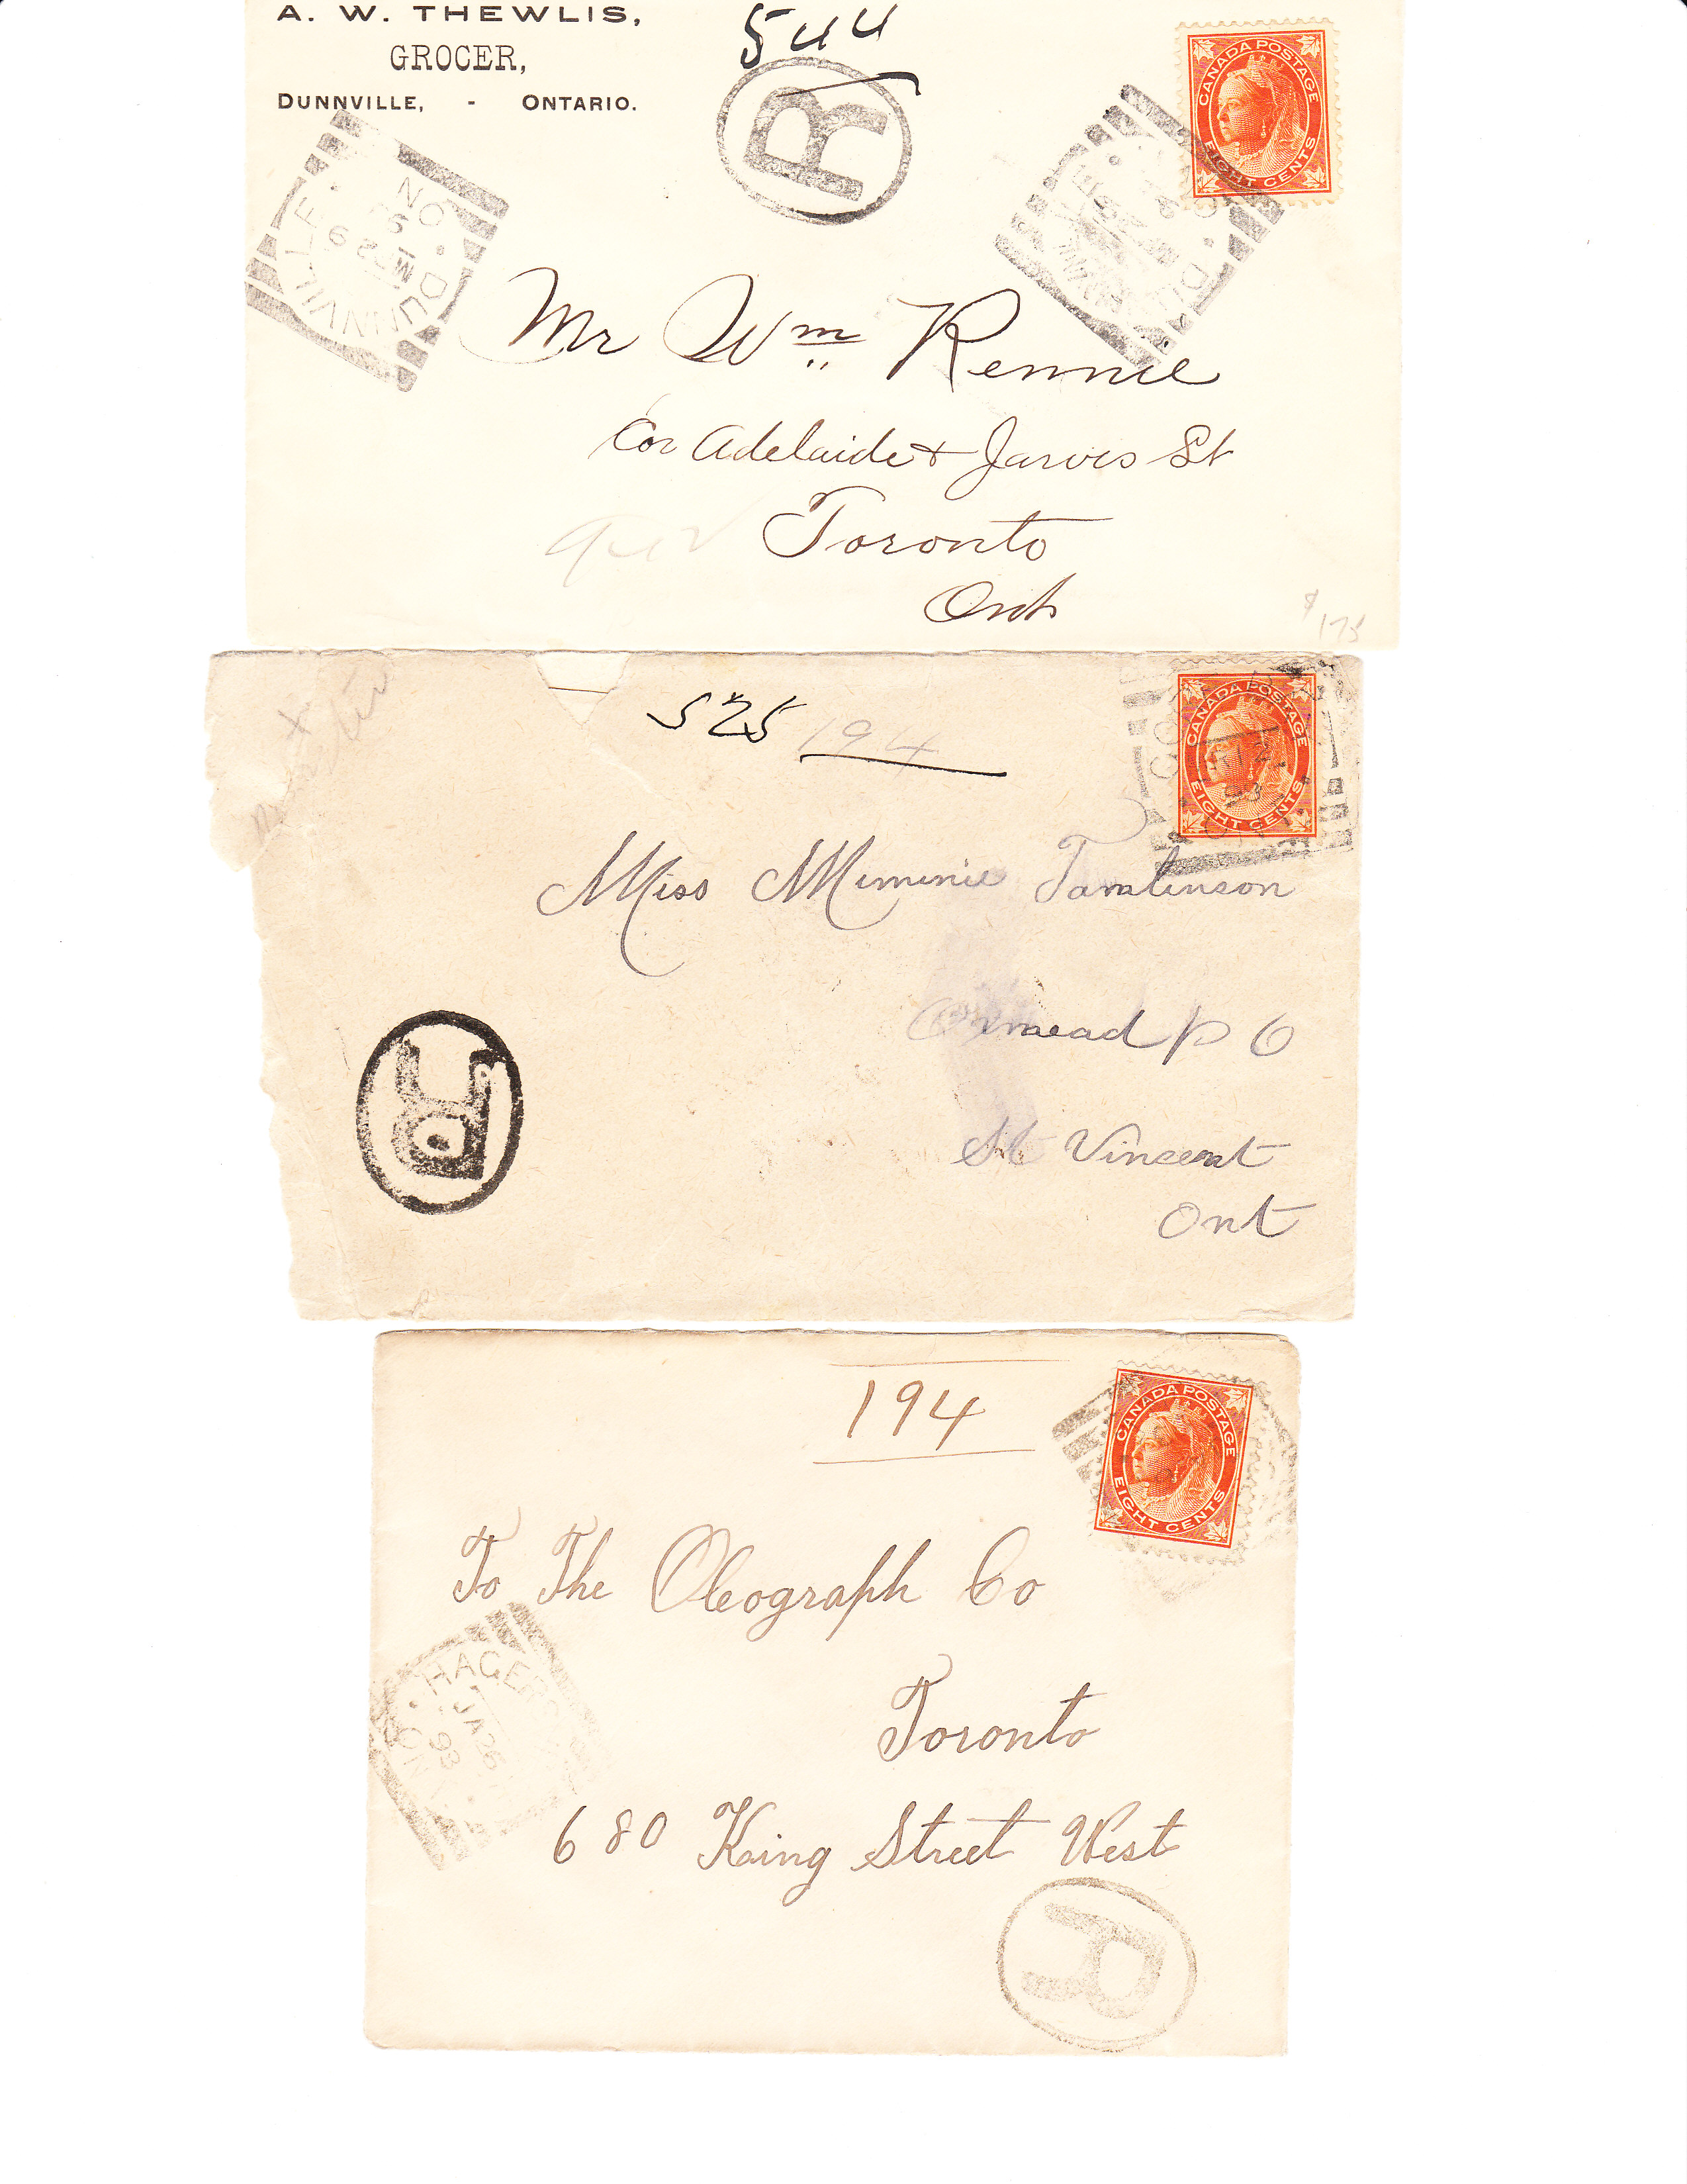 A. W. THEWLIS,
GROCER,
DUNNVILLE, - ONTARIO.
544
R
CANADA POSTAGE
EIGHT CENTS
DUNNVILLE
ON
Mr Wm Rennie
Cor Adelaide & Jarvis St
Toronto
Ont
$175
525 194
CANADA POSTAGE
EIGHT CENTS
Miss Mimmie Tomlinson
R
P O
St Vincent
Ont
194
CANADA POSTAGE
EIGHT CENTS
To The Oleograph Co
Toronto
HAGERS
JA 26
93
ONT
680 King Street West
R